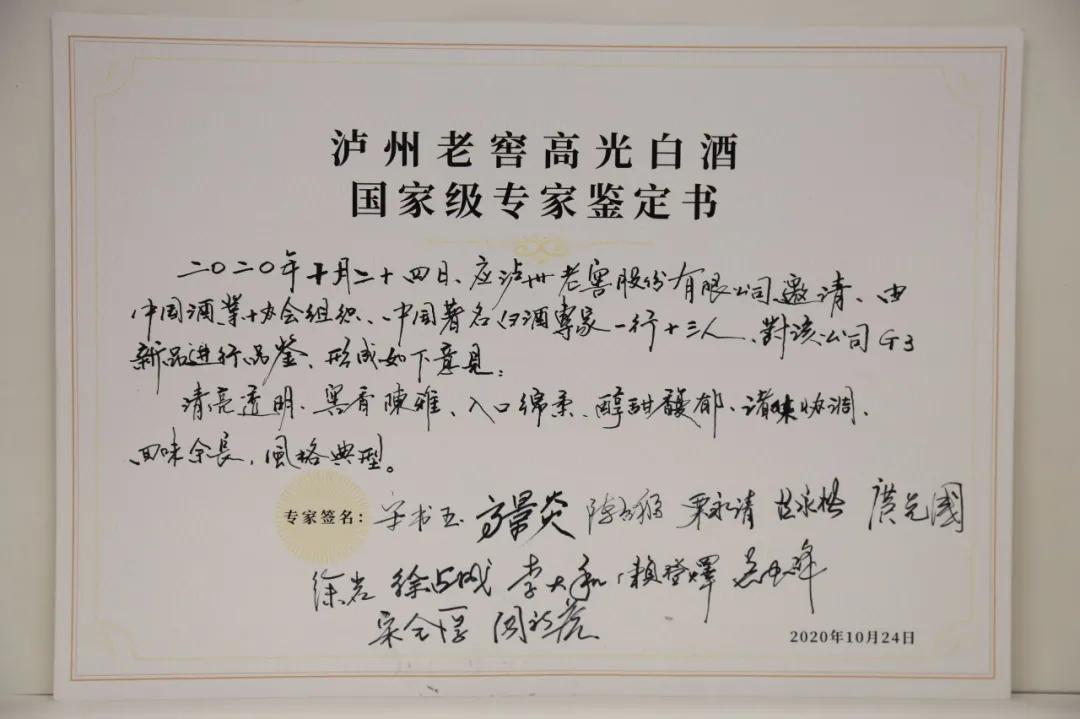 泸州老窖高光白酒
国家级专家鉴定书
二〇二〇年十月二十四日、应泸州老窖股份有限公司邀请、由
中国酒业协会组织、中国著名白酒專家一行十三人、對该公司G3
新品进行品鉴、形成如下意見:
清亮透明、窖香陳雅、入口绵柔、醇甜馥郁、诸味协调、
回味余長,風格典型。
专家签名: 宋书玉 高景炎 栗永清
徐岩 徐占成 李大和 賴登燡
宋全厚
2020年10月24日